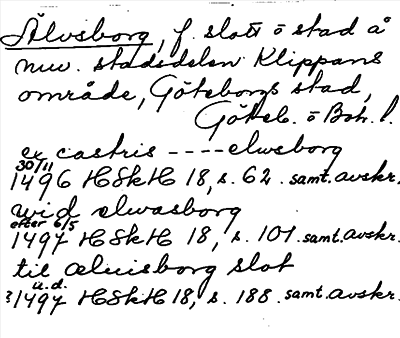 Älvsborg, f. slott o stad å
nuv. stadsdelen Klippans
område, Göteborgs stad,
Göteb. o Boh. l.
ex castris ----elwsborg
30/11
1496 HSkH 18, s. 62. samt. avskr.
wid elwasborg
efter 6/5
1497 HSkH 18, s. 101. samt. avskr.
til æluisborg slot
u.d.
?1497 HSkH 18, s. 188. samt. avskr.